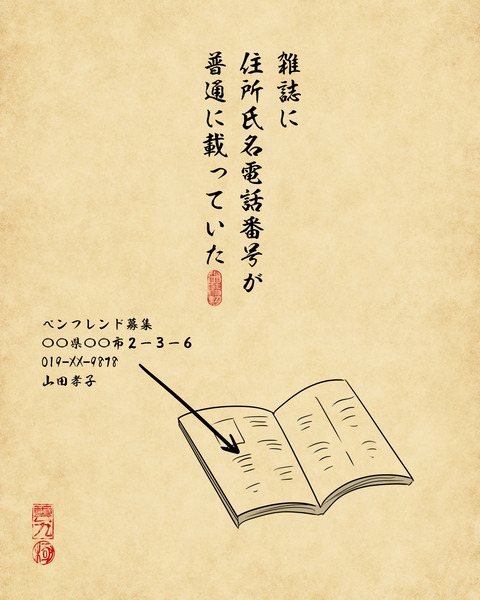 雑誌に
住所氏名電話番号が
普通に載っていた
ペンフレンド募集
〇〇県〇〇市２－３－６
019-XX-9878
山田孝子